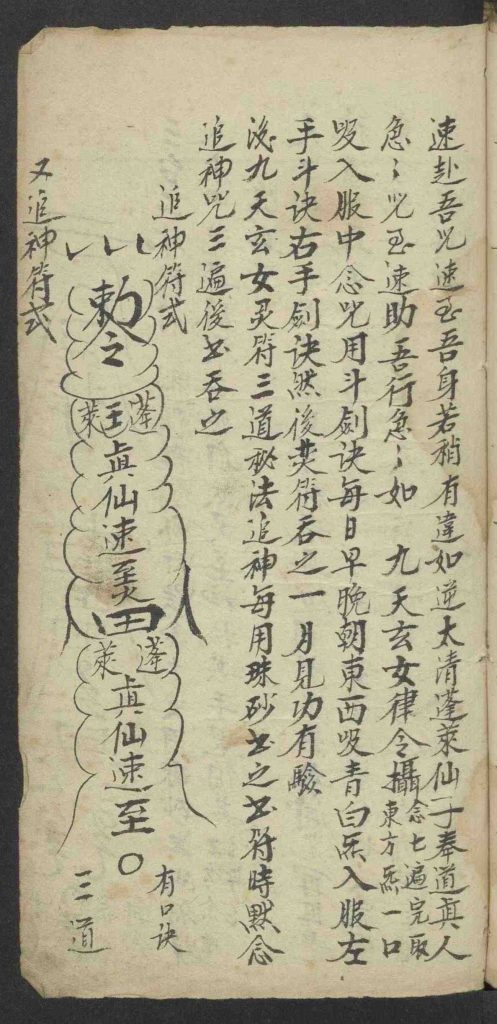 速赴吾咒速至吾身若稍有違如逆太清蓬萊仙子奉道真人
急々咒至速助吾行急々如 九天玄女律令攝念七遍完取東方炁一口
吸入服中念咒用斗劍訣每日早晚朝東西吸青白炁入服左
手斗訣右手劍訣然後焚符吞之一月見功有驗
後九天玄女灵符三道秘法追神每用珠砂书之书符時默念
追神咒三遍後书吞之
追神符式
有口訣
敕令
蓬王萊
真仙速至
田
蓬萊
真仙速至
三道
又追神符式